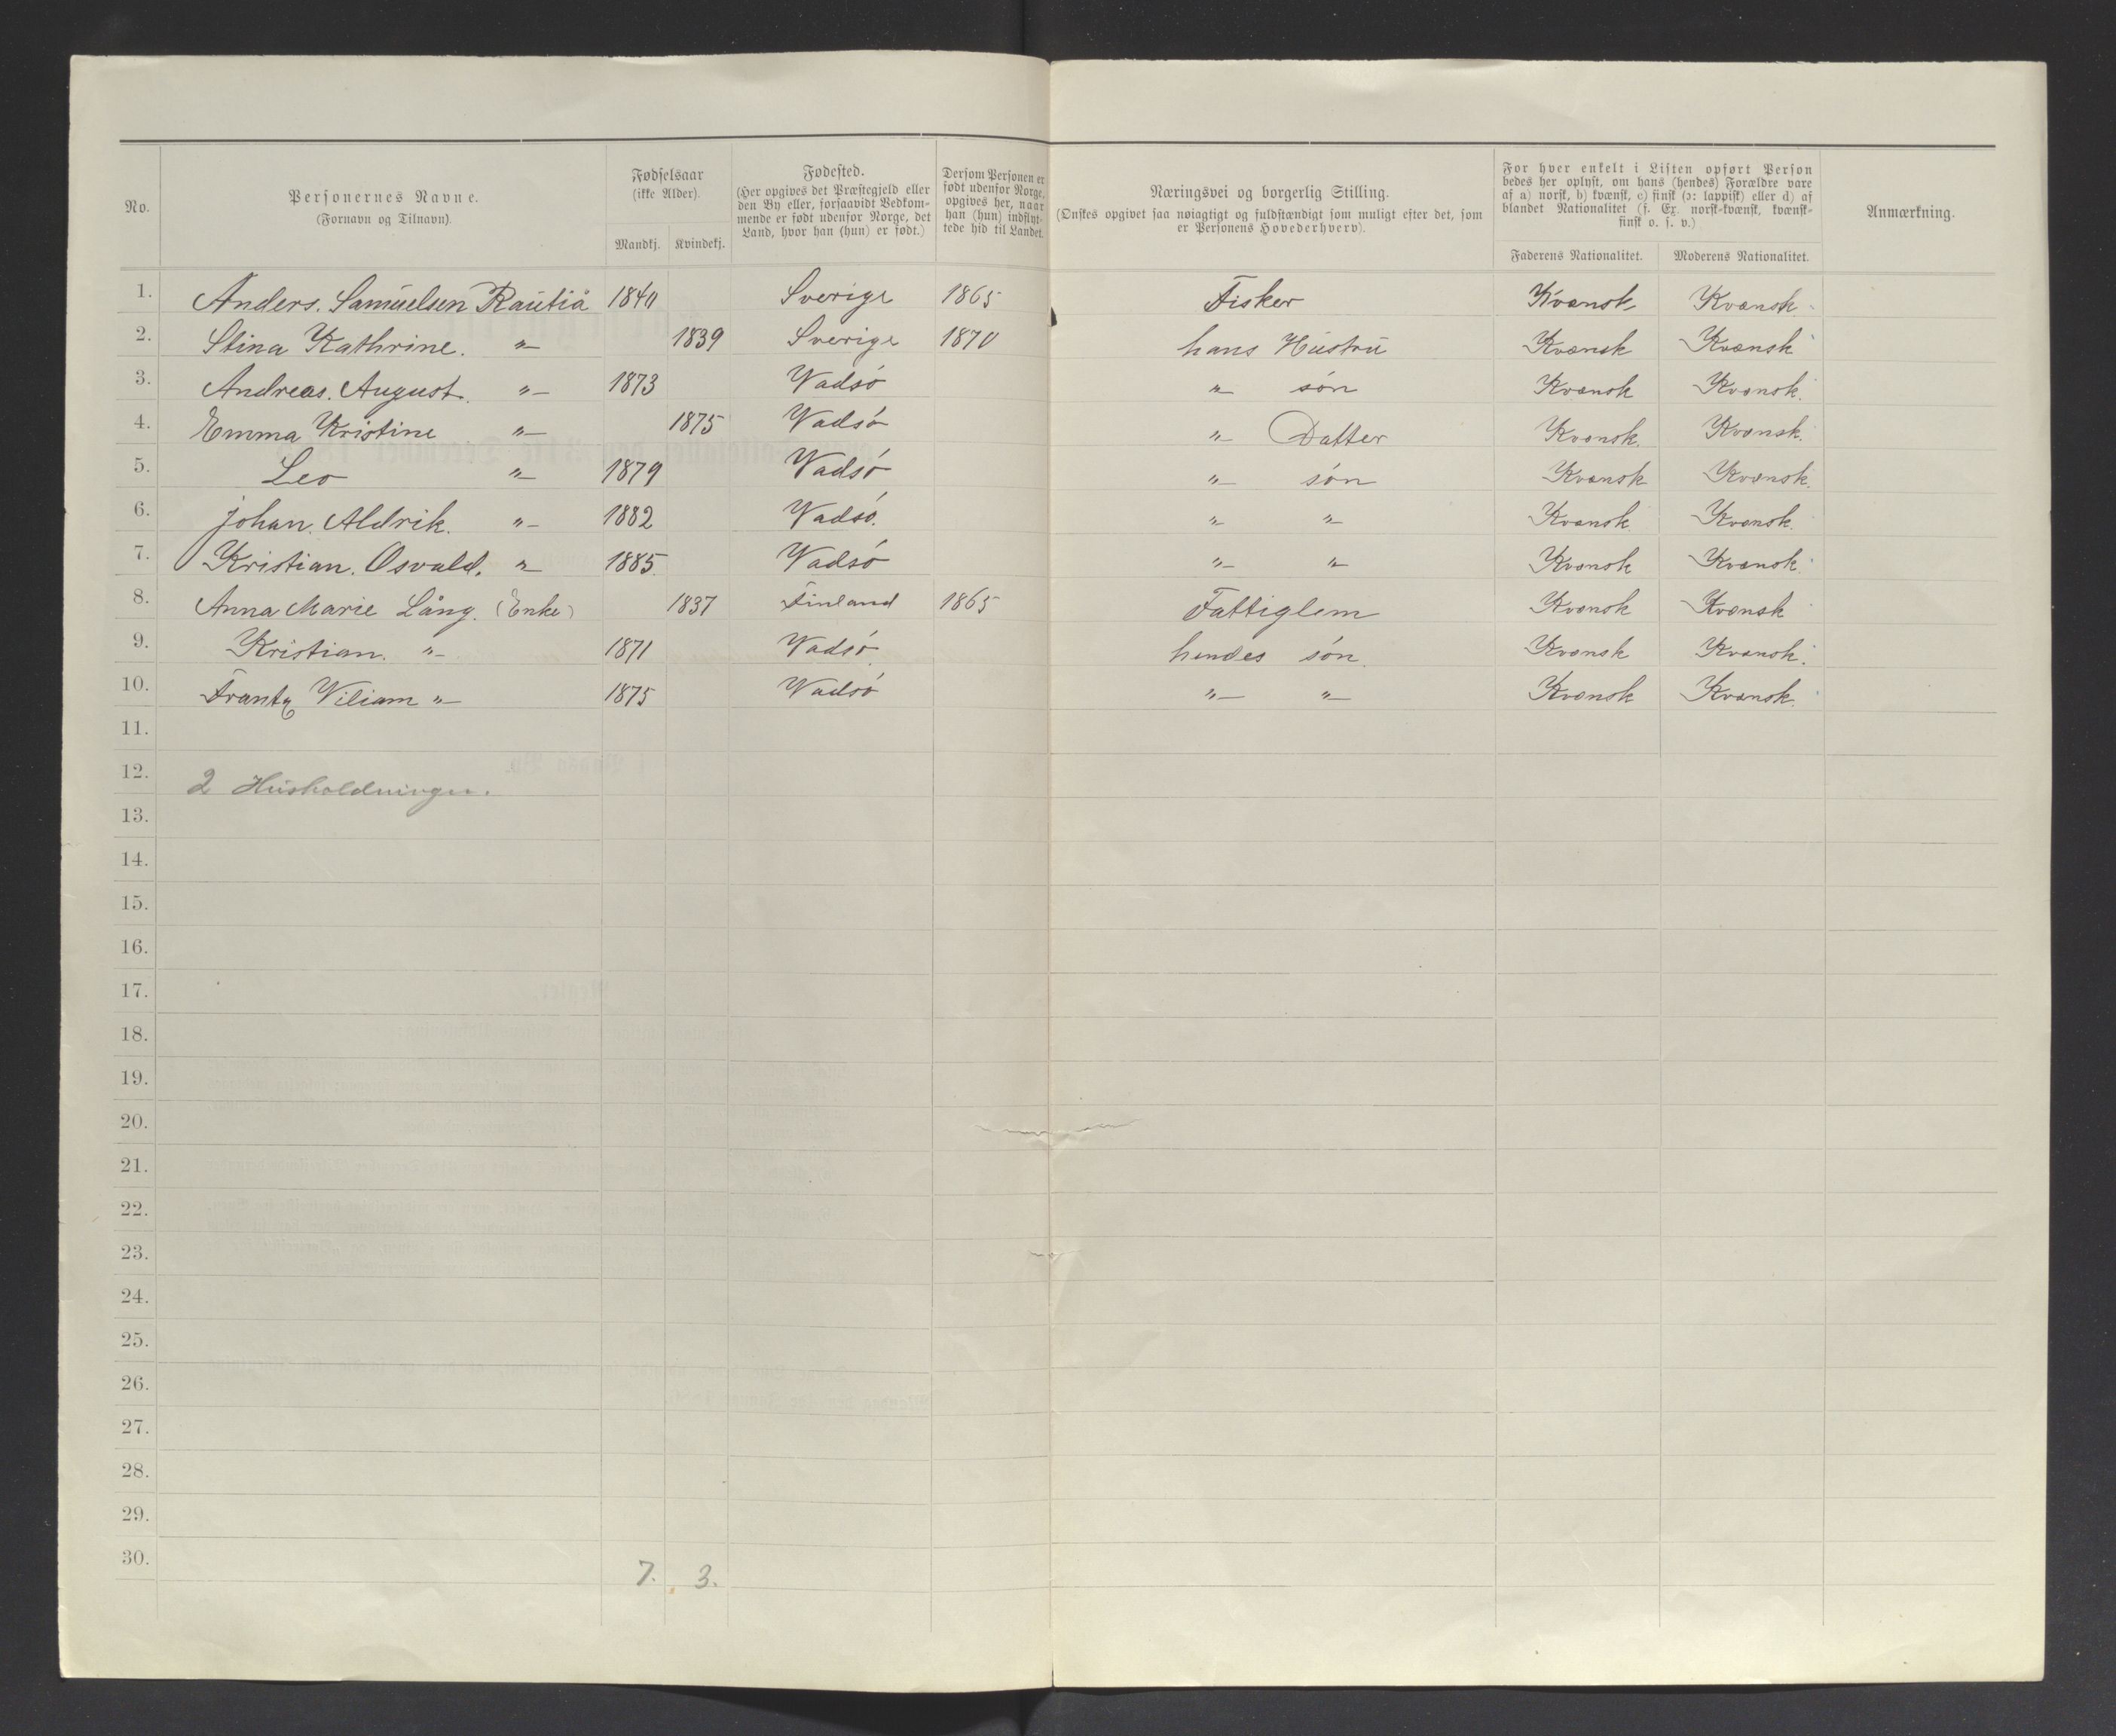 No.
Personernes Navne.
(Fornavn og Tilnavn).
Fødselsaar
(ikke Alder).
Mandkj. Kvindekj.
Fødested.
(Her opgives det Præstegjeld eller
den By eller, forsaavidt Vedkom-
mende er født udenfor Norge, det
Land, hvor han (hun) er født.)
Dersom Personen er
født udenfor Norge,
opgives her, naar
han (hun) indflyt-
tede hid til Landet.
Næringsvei og borgerlig Stilling.
(Ønskes opgivet saa nøiagtigt og fuldstændigt som muligt efter det, som
er Personens Hovederhverv).
For hver enkelt i Listen opført Person
bedes her oplyst, om hans (hendes) Forældre vare
af a) norsk, b) kvænsk, c) finsk (ɔ: lappisk) eller d) af
blandet Nationalitet (f. Ex. norsk-kvænsk, kvænsk-
finsk o. s. v.)
Faderens Nationalitet. Moderens Nationalitet.
Anmærkning.
1. Anders. Samuelsen Rautiå 1840 Sverige 1865 Fisker Kvænsk Kvænsk.
2. Stina Kathrine. „— 1839 Sverige 1870 hans Hustru Kvænsk Kvænsk
3. Andreas. August. „— 1873 Vadsö „— sön Kvænsk Kvænsk.
4. Emma Kristine „— 1875 Vadsö „— Datter Kvænsk. Kvænsk.
5. Leo „— 1879 Vadsö „— sön Kvænsk Kvænsk.
6. Johan. Aldrik. „— 1882 Vadsö. „— „— Kvænsk Kvænsk.
7. Kristian. Osvald. „— 1885. Vadsö „— „— Kvænsk Kvænsk.
8. Anna Marie Lång. (Enke) 1837 Finland 1865 Fattiglem Kvænsk Kvænsk
9. Kristian. „— 1871 Vadsö. hendes sön. Kvænsk Kvænsk.
10. Frantz Viliam „— 1875 Vadsö „— „— Kvænsk Kvænsk.
11.
12. 2 Husholdninger.
13.
14.
15.
16.
17.
18.
19.
20.
21.
22.
23.
24.
25.
26.
27.
28.
29.
30. 7. 3.